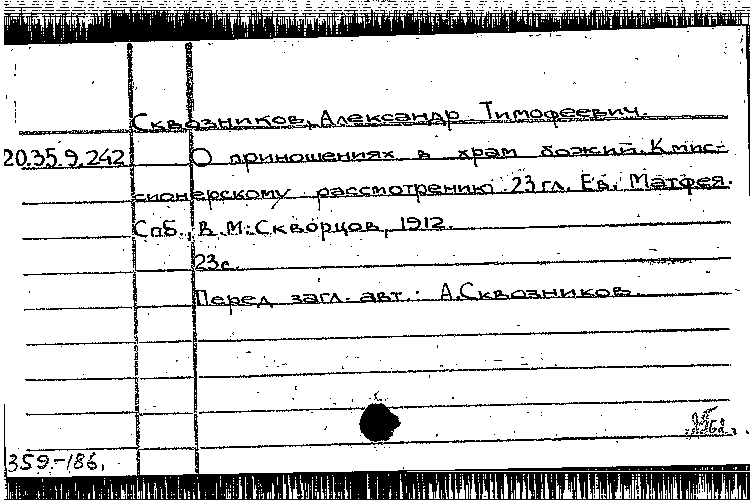 Сквозников, Александр Тимофеевич.
20.35.9.242 О приношениях в храм божий. К мис-
сионерскому рассмотрению 23 гл. Ев. Матфея.
Спб., В.М. Скворцов, 1912.
23 с.
Перед загл. авт.: А.Сквозников.
359.-186.